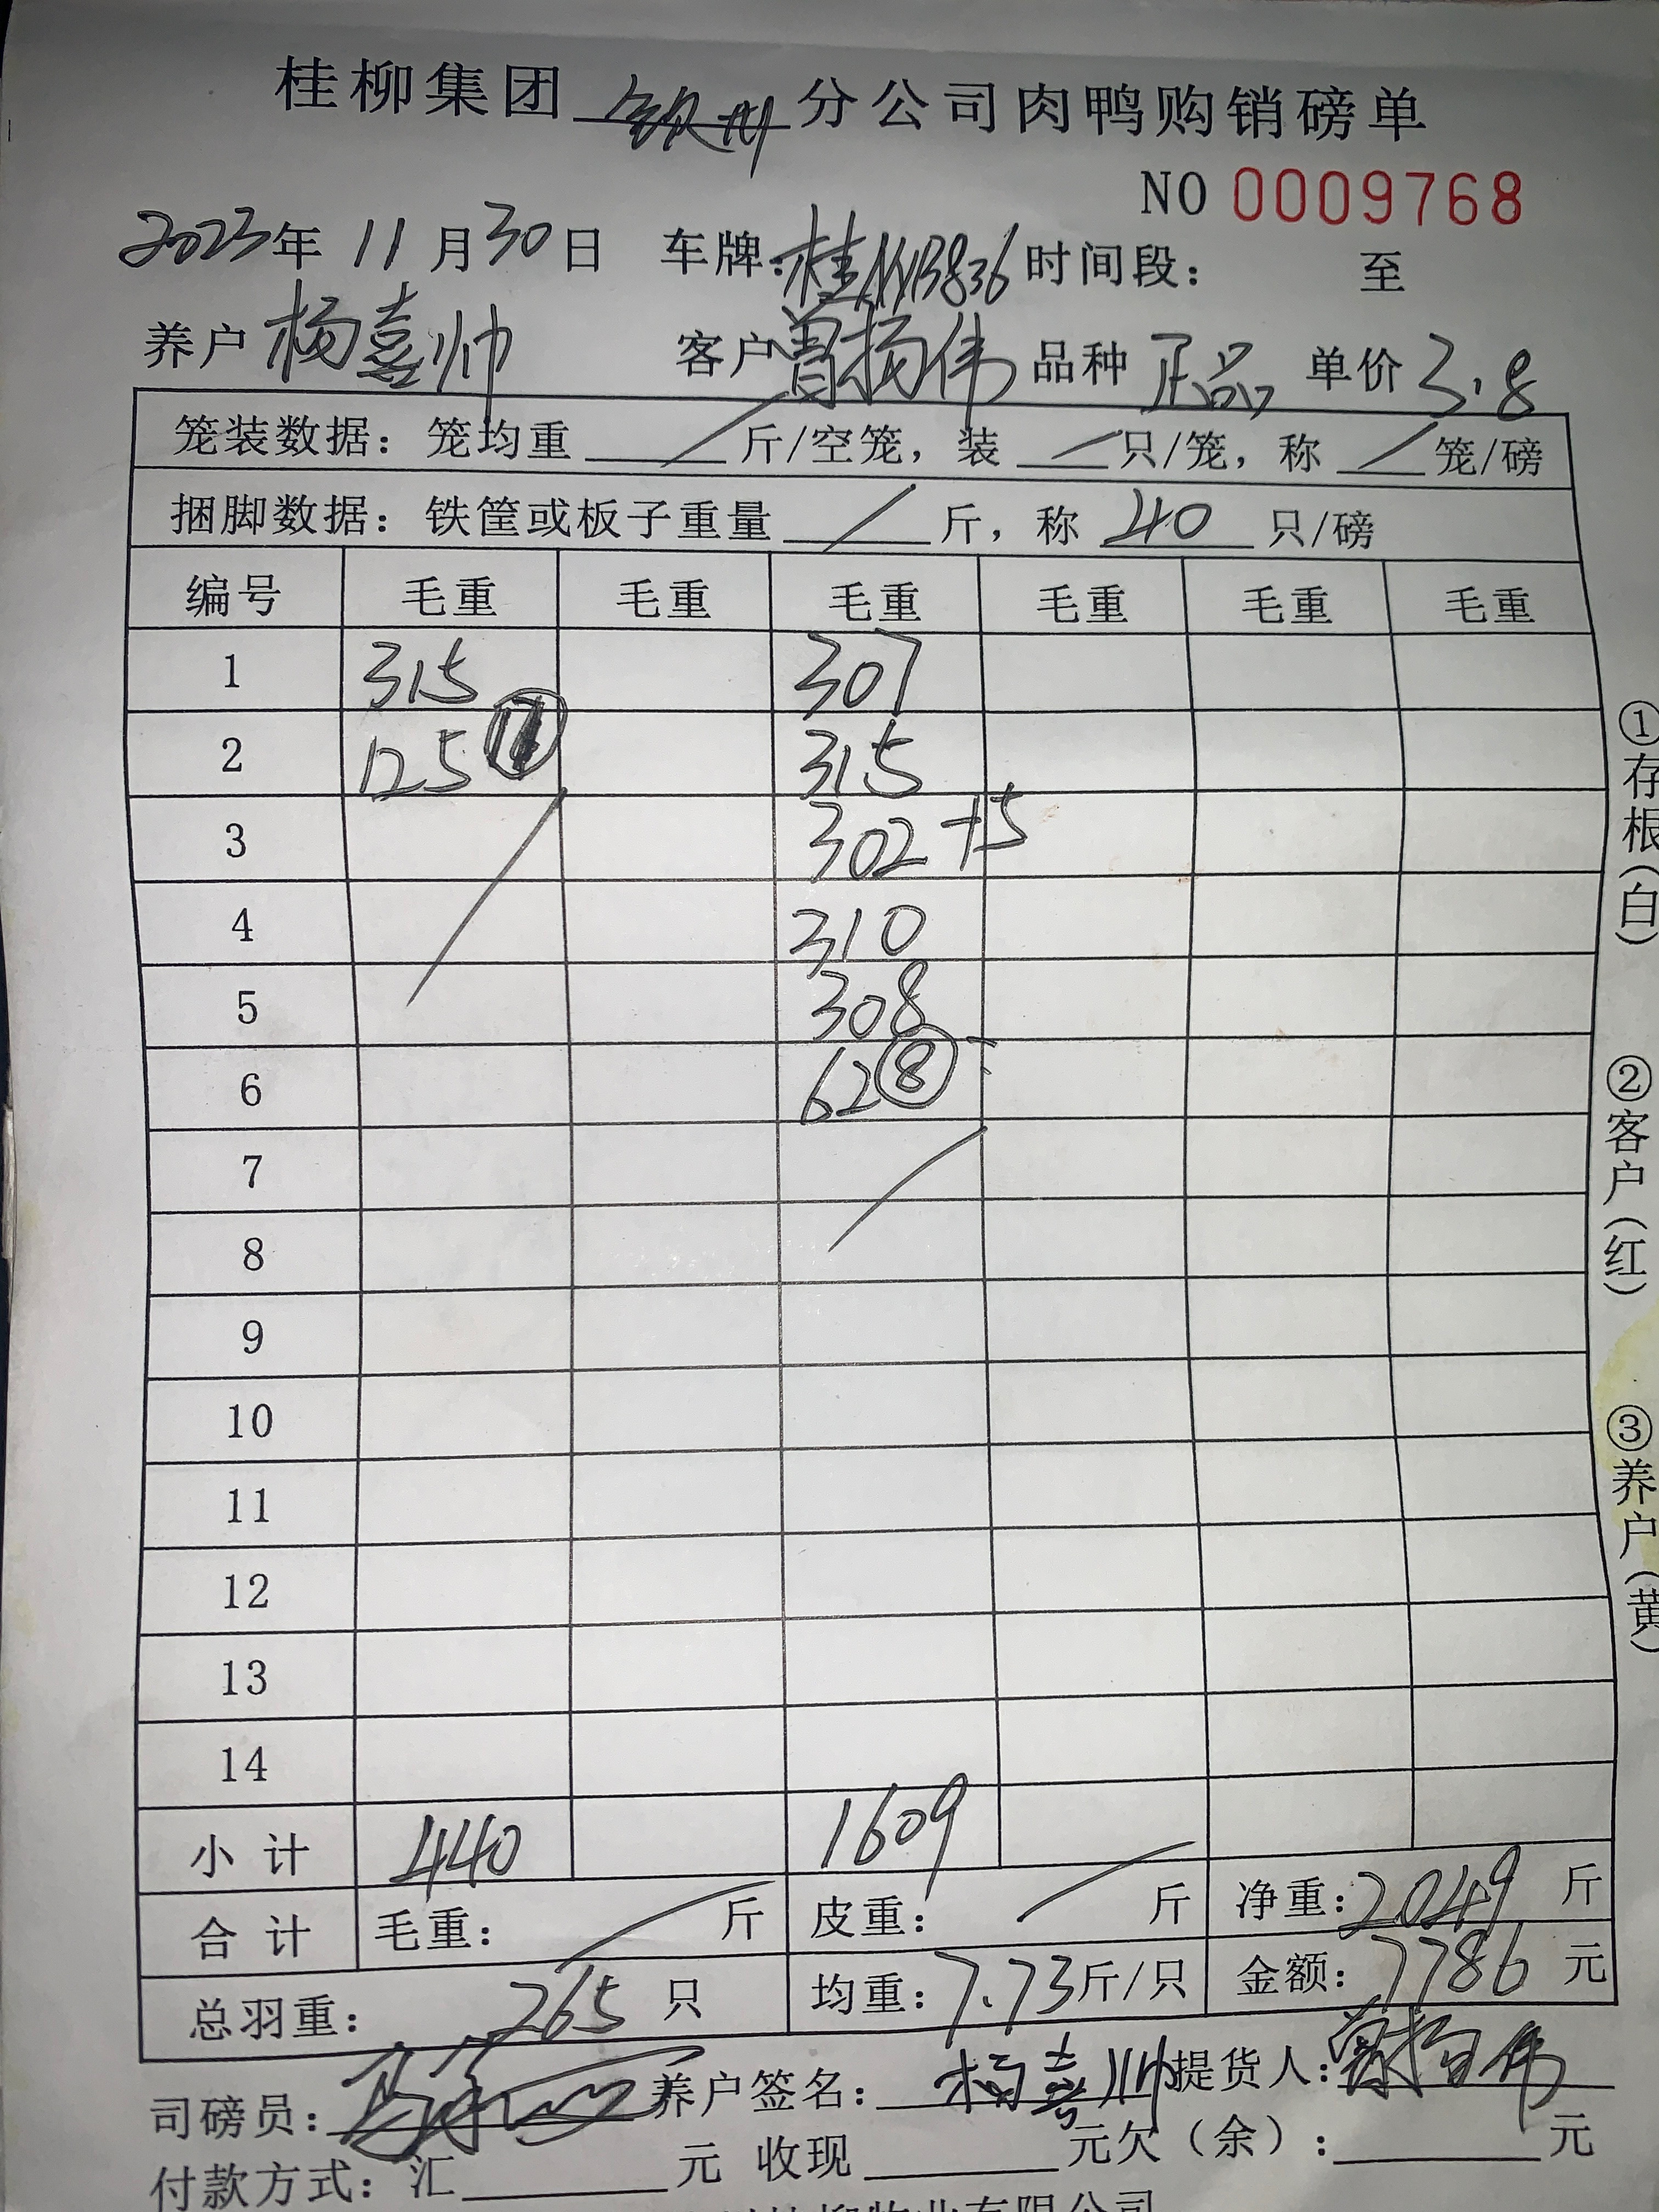 桂柳集团 钦州 分公司肉鸭购销磅单
NO 0009768
2023年 11月30日 车牌:桂 时间段: 至
养户 杨嘉帅 客户 曾扬伟 品种 正品 单价 3.8
笼装数据: 笼均重 / 斤/空笼, 装 / 只/笼, 称 / 笼/磅
捆脚数据: 铁筐或板子重量 / 斤, 称 40 只/磅
编号 毛重 毛重 毛重 毛重 毛重 毛重
1 315 307
2 125 315
3 302 +5
4 310
5 308
6 62 ⑧
7
8
9
10
11
12
13
14
小计 440 1609
合计 毛重: / 斤 皮重: / 斤 净重: 2049 斤
总羽重: 265 只 均重: 7.73 斤/只 金额: 7786 元
司磅员: 养户签名: 杨嘉帅 提货人: 曾扬伟
付款方式: 汇 元 收现 元欠(余): 元
物业有限公司
①存根(白)
②客户(红)
③养户(黄)